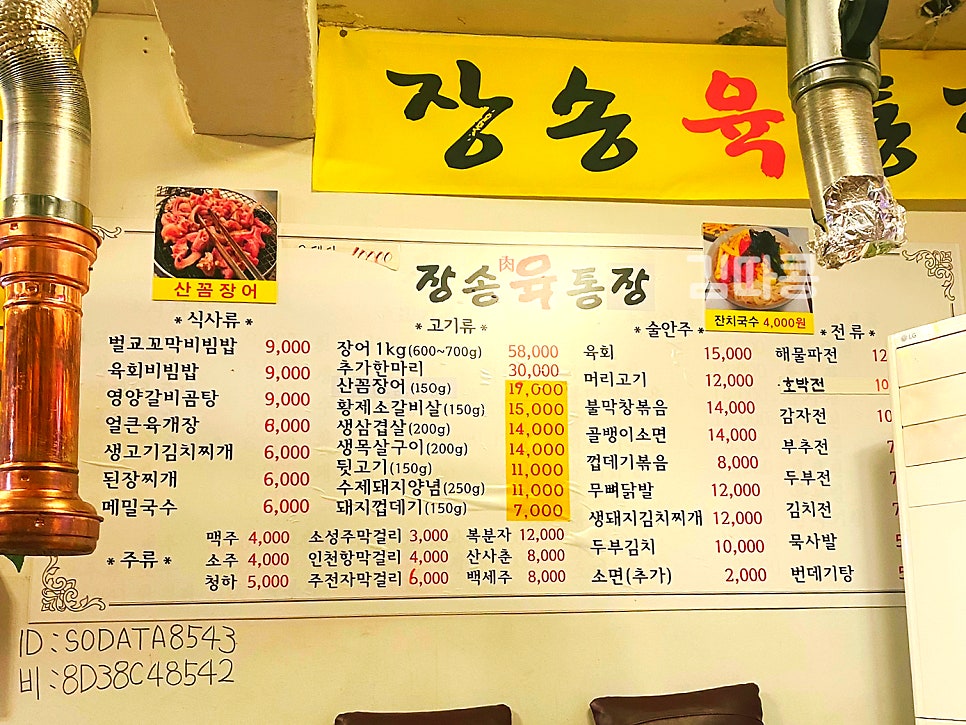 장송육통
장송肉육통장
산꼼장어
잔치국수 4,000원
김따콩
* 식사류 *
벌교꼬막비빔밥 9,000
육회비빔밥 9,000
영양갈비곰탕 9,000
얼큰육개장 6,000
생고기김치찌개 6,000
된장찌개 6,000
메밀국수 6,000
* 고기류 *
장어 1kg(600~700g) 58,000
추가한마리 30,000
산꼼장어(150g) 19,000
황제소갈비살(150g) 15,000
생삼겹살(200g) 14,000
생목살구이(200g) 14,000
뒷고기(150g) 11,000
수제돼지양념(250g) 11,000
돼지껍데기(150g) 7,000
* 술안주 *
육회 15,000
머리고기 12,000
불막창볶음 14,000
골뱅이소면 14,000
껍데기볶음 8,000
무뼈닭발 12,000
생돼지김치찌개 12,000
두부김치 10,000
소면(추가) 2,000
* 전류 *
해물파전 12
호박전 10
감자전 10
부추전 7
두부전
김치전 7
묵사발 5
번데기탕 5
* 주류 *
맥주 4,000 소성주막걸리 3,000 복분자 12,000
소주 4,000 인천항막걸리 4,000 산사춘 8,000
청하 5,000 주전자막걸리 6,000 백세주 8,000
LG
ID : SODATA8543
비 : 8D38C48542